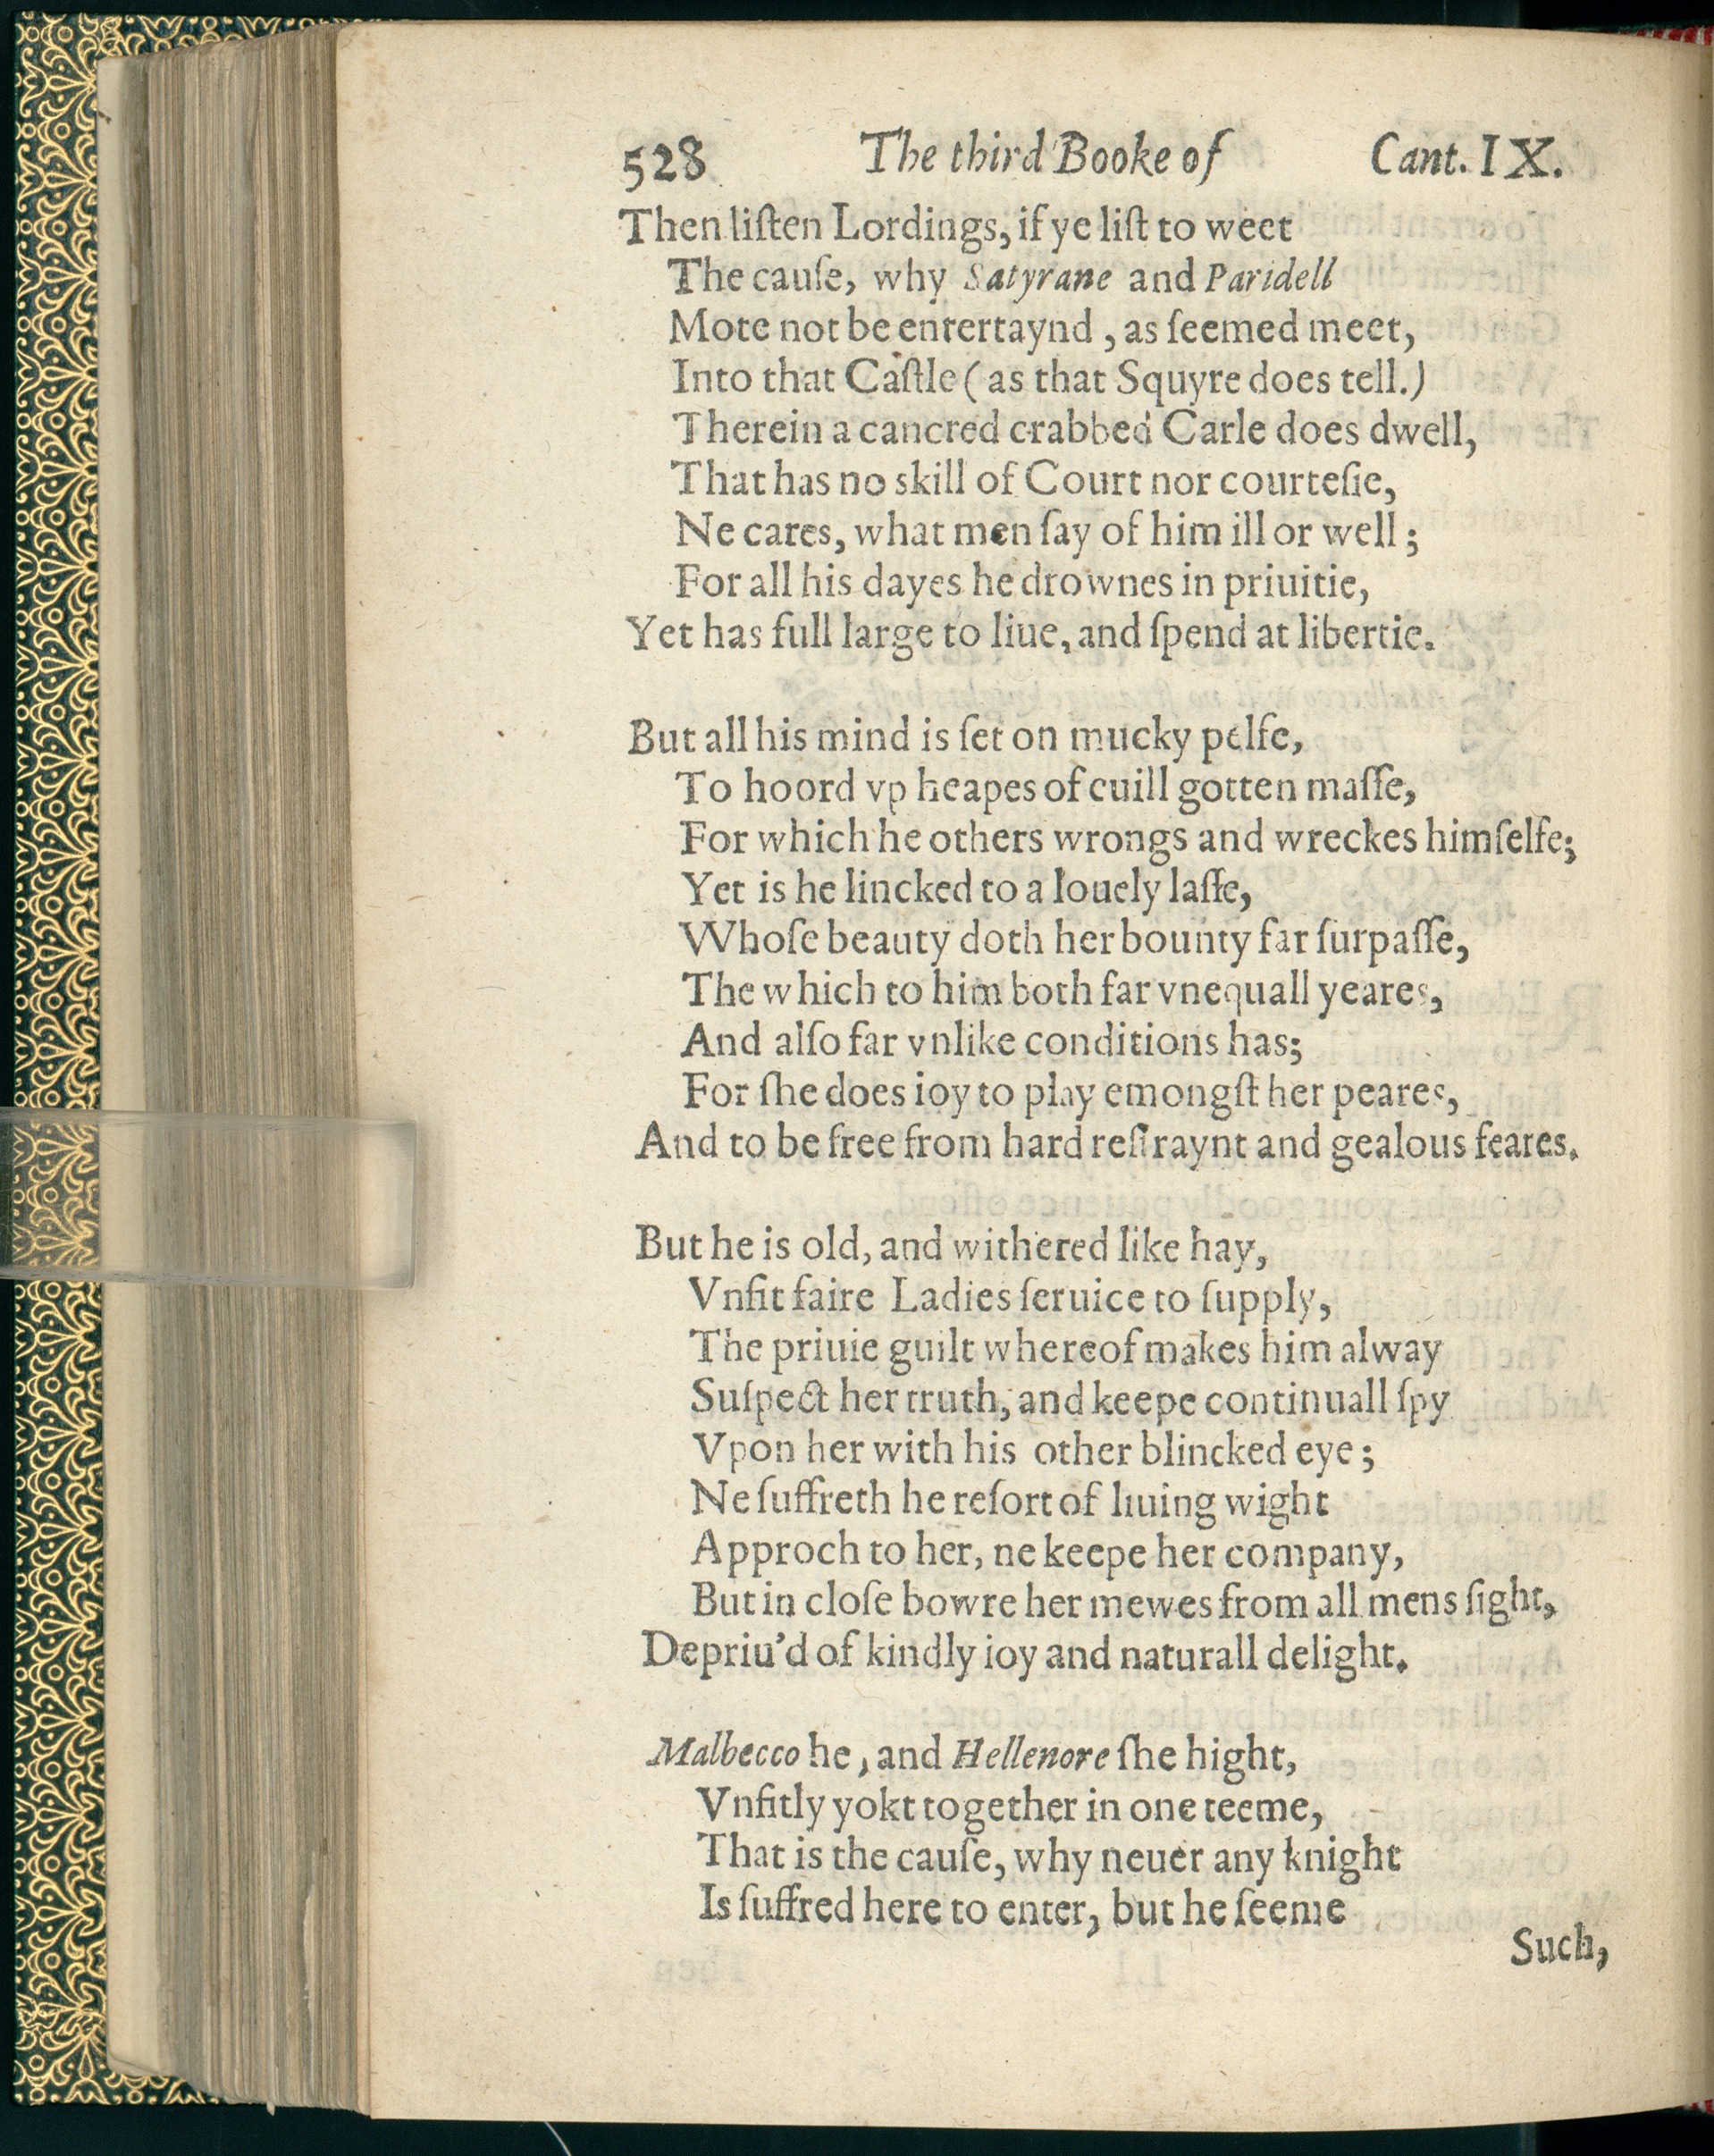 528 The third Booke of Cant. IX.
Then liſten Lordings, if ye liſt to weet
The cauſe, why Satyrane and Paridell
Mote not be entertaynd, as ſeemed meet,
Into that Caſtle (as that Squyre does tell.)
Therein a cancred crabbed Carle does dwell,
That has no skill of Court nor courteſie,
Ne cares, what men ſay of him ill or well;
For all his dayes he drownes in priuitie,
Yet has full large to liue, and ſpend at libertie.
But all his mind is ſet on mucky pelfe,
To hoord vp heapes of euill gotten maſſe,
For which he others wrongs and wreckes himſelfe;
Yet is he lincked to a louely laſſe,
Whoſe beauty doth her bounty far ſurpaſſe,
The which to him both far vnequall yeares,
And alſo far vnlike conditions has;
For ſhe does ioy to play emongſt her peares,
And to be free from hard reſtraynt and gealous feares.
But he is old, and withered like hay,
Vnfit faire Ladies ſeruice to ſupply,
The priuie guilt whereof makes him alway
Suſpect her truth, and keepe continuall ſpy
Vpon her with his other blincked eye;
Ne ſuffreth he reſort of liuing wight
Approch to her, ne keepe her company,
But in cloſe bowre her mewes from all mens ſight,
Depriu'd of kindly ioy and naturall delight.
Malbecco he, and Hellenore ſhe hight,
Vnfitly yokt together in one teeme,
That is the cauſe, why neuer any knight
Is ſuffred here to enter, but he ſeeme
Such,